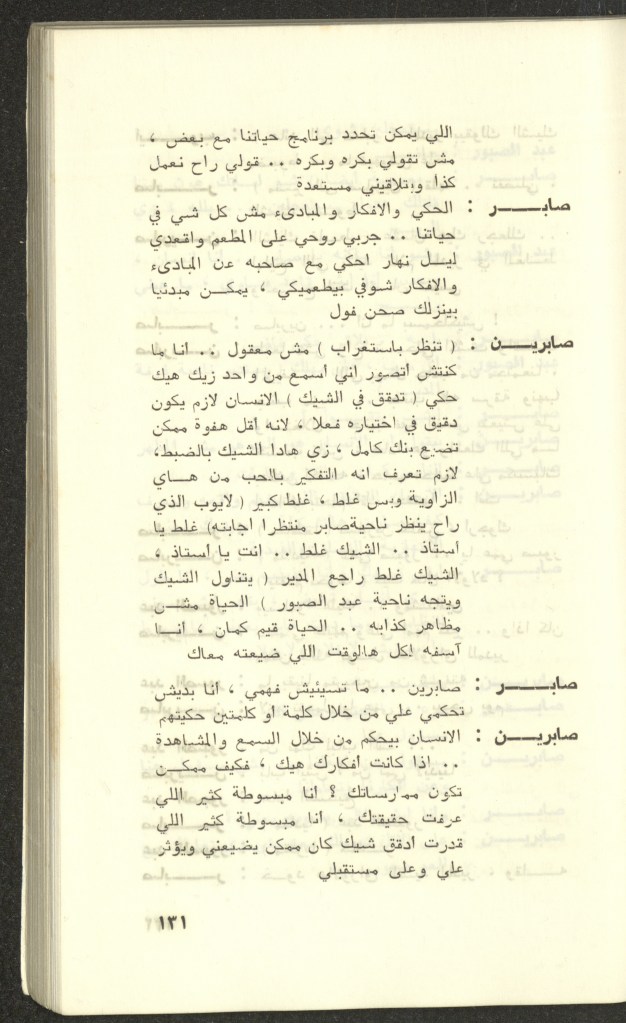 اللي يمكن تحدد برنامج حياتنا مع بعض ،
مش تقولي بكره وبكره .. قولي راح نعمل
كذا وبتلاقيني مستعدة
صابـــر : الحكي والافكار والمبادىء مش كل شي في
حياتنا .. جربي روحي على المطعم واقعدي
ليـل نهار احكي مع صاحبه عن المبادىء
والافكار شوفي بيطعميكي ، يمكـن مبدئيا
بينزلك صحن فول
صابريـن : ( تنظر باستغراب ) مش معقول .. انا ما
كنتش اتصور اني أسمع من واحد زيك هيك
حكي ( تدقق في الشيك ) الانسان لازم يكون
دقيق في اختياره فعلا ، لانه اقل هفوة ممكن
تضيع بنك كامل ، زي هادا الشيك بالضبط،
لازم تعرف انه التفكير بالحب من هـاي
الزاوية وبس غلط ، غلط كبير ( لايوب الذي
راح ينظر ناحيةصابر منتظرا اجابته) غلط يا
أستاذ .. الشيك غلط .. انت يا أستاذ ،
الشيك غلط راجع المدير ( يتناول الشيك
ويتجه ناحية عبد الصبور ) الحياة مشـن
مظاهر كذابه .. الحياة قيم كمان ، أنـا
آسفه لكل هالوقت اللي ضيعته معاك
صابـــر : صابرين .. ما تسيئيش فهمي ، أنا بديش
تحكمي علي من خلال كلمة او كلمتين حكيتهم
صابريـن : الانسان بيحكم من خلال السمع والمشاهدة
.. اذا كانت أفكارك هيك ، فكيف ممكـن
تكون ممارساتك ؟ أنا مبسوطة كثير اللي
عرفت حقيقتك ، أنا مبسوطة كثير اللي
قدرت ادقق شيك كان ممكن يضيعني ويؤثر
علي وعلى مستقبلي
١٣١